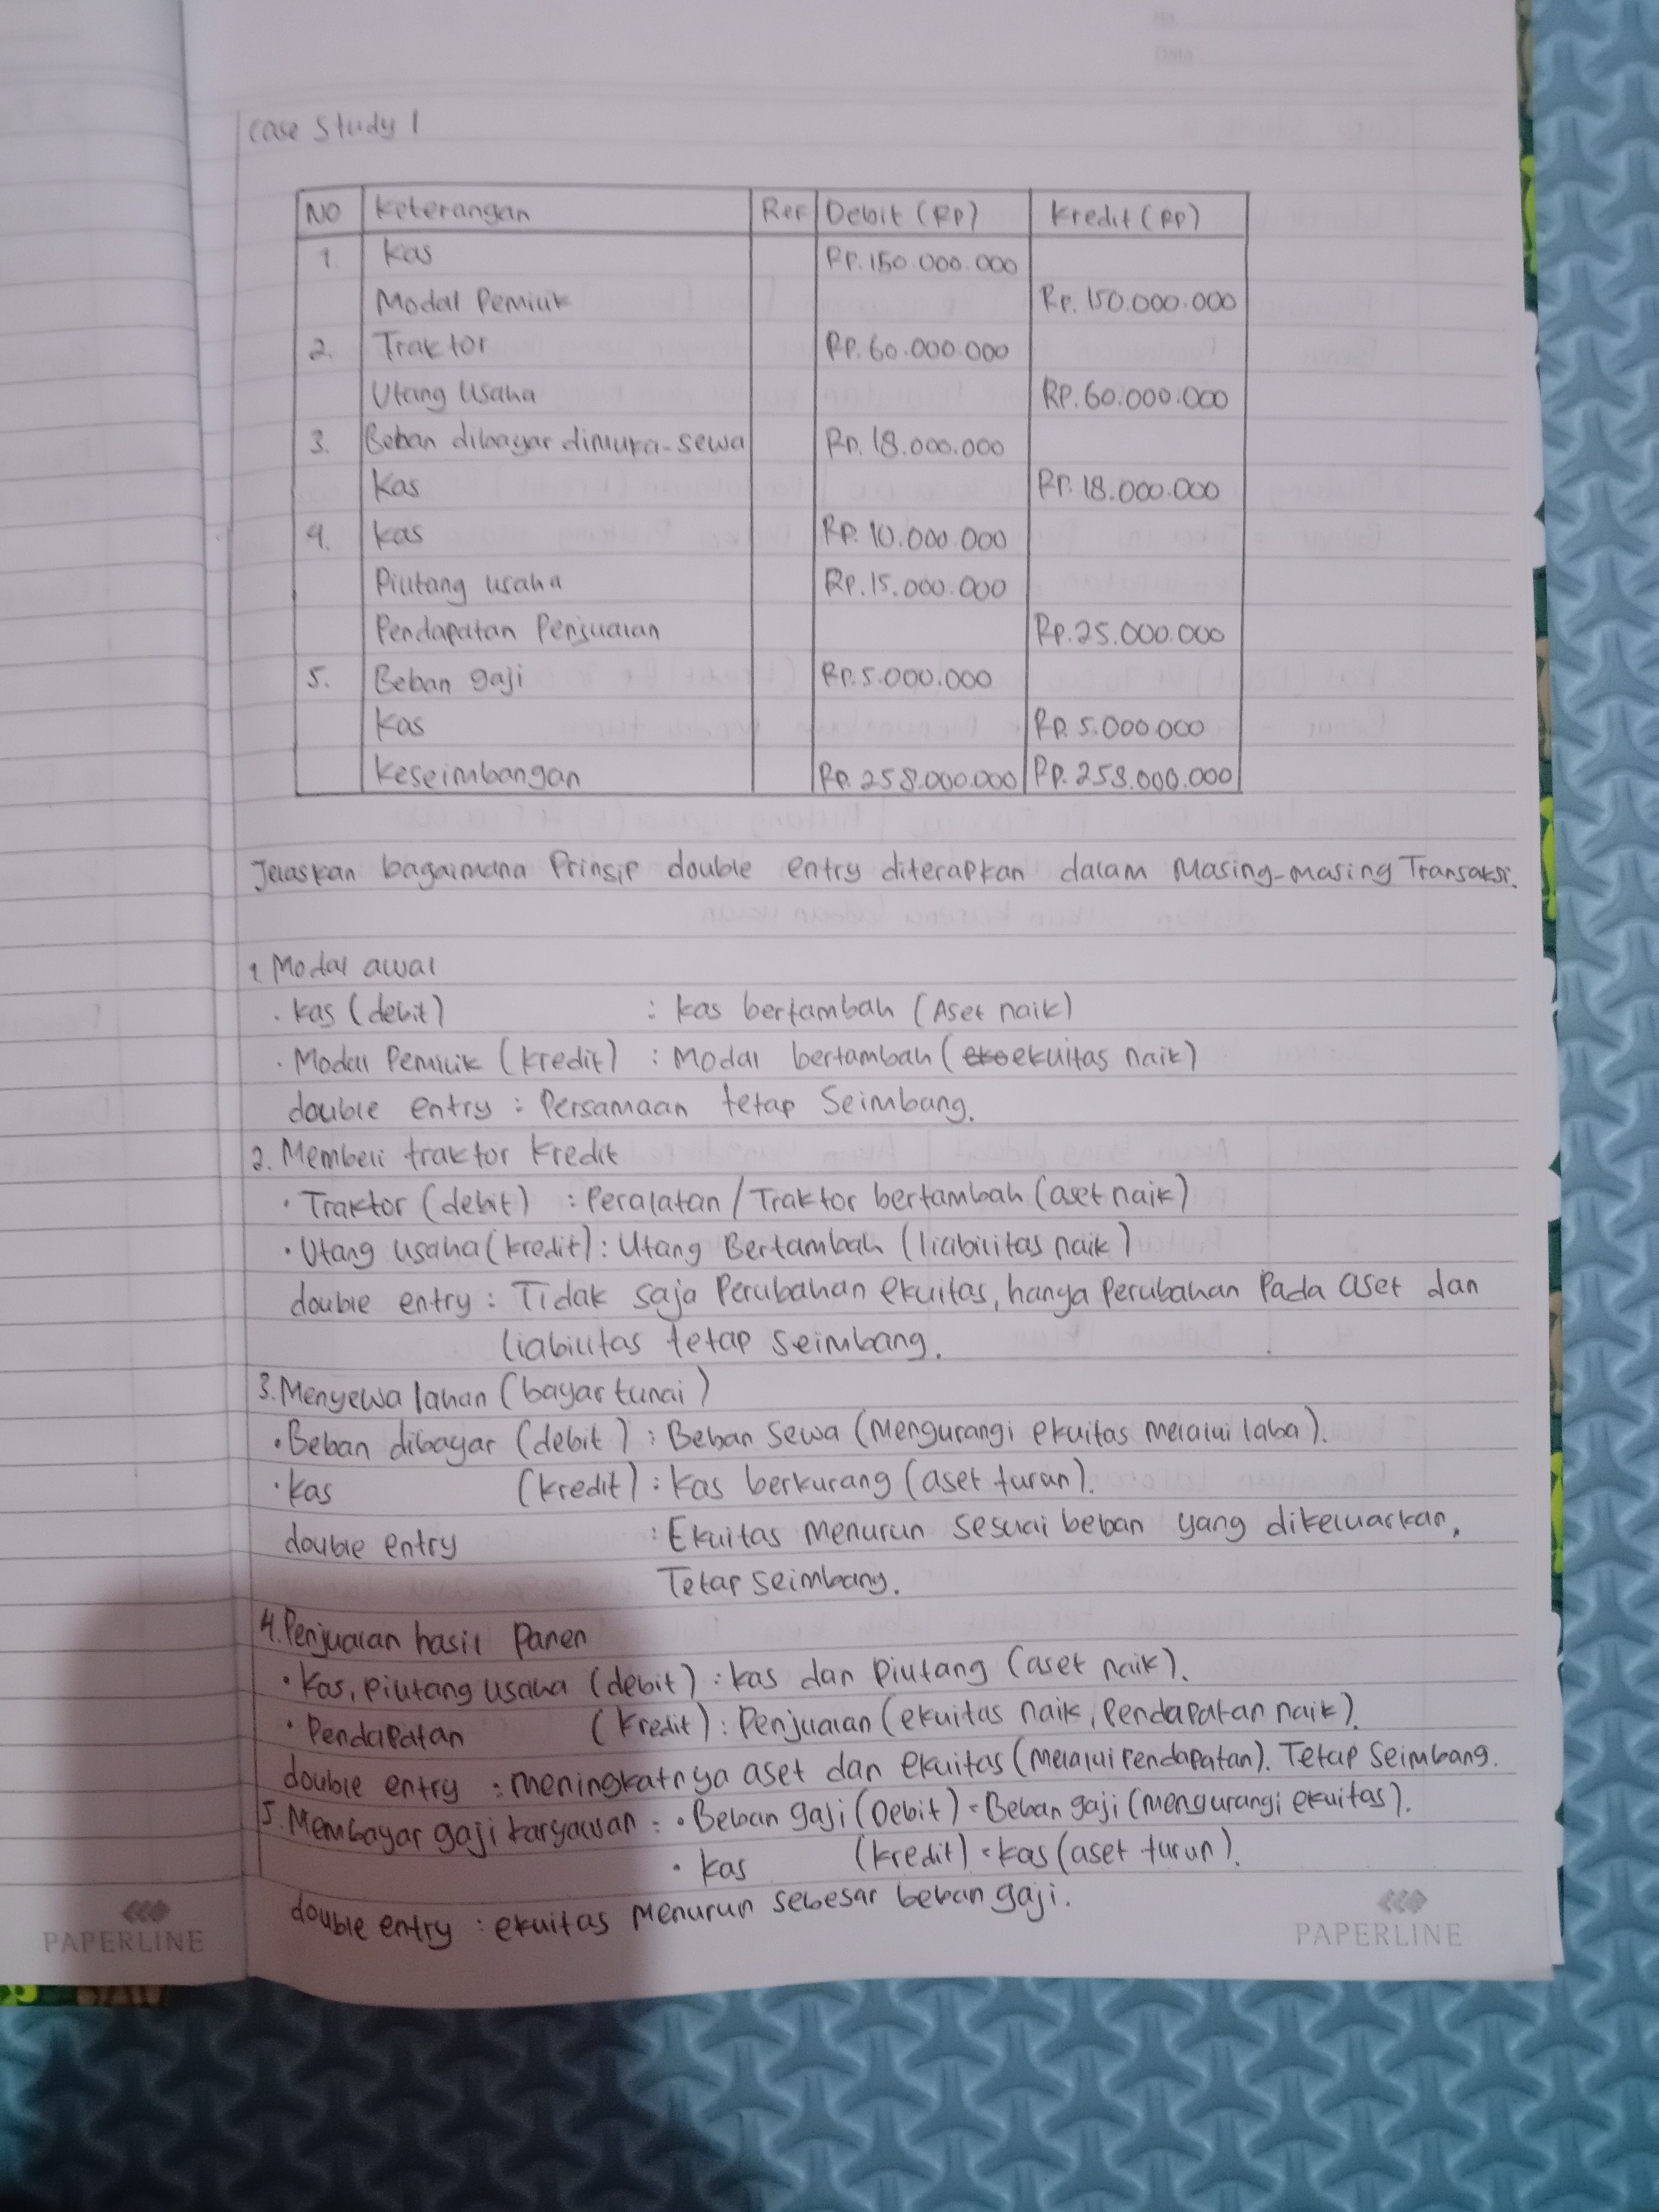 No.
Date
Case Study 1
No Keterangan Ref Debit (Rp) Kredit (Rp)
1. Kas Rp. 150.000.000
Modal Pemilik Rp. 150.000.000
2. Traktor Rp. 60.000.000
Utang Usaha Rp. 60.000.000
3. Beban dibayar dimuka-sewa Rp. 18.000.000
Kas Rp. 18.000.000
4. Kas Rp. 10.000.000
Piutang usaha Rp. 15.000.000
Pendapatan Penjualan Rp. 25.000.000
5. Beban gaji Rp. 5.000.000
Kas Rp. 5.000.000
Keseimbangan Rp. 258.000.000 Rp. 258.000.000
Jelaskan bagaimana Prinsip double entry diterapkan dalam Masing-masing Transaksi.
1. Modal awal
· Kas (debit) : Kas bertambah (Aset naik)
· Modal Pemilik (kredit) : Modal bertambah (ekuitas naik)
double entry : Persamaan tetap Seimbang.
2. Membeli traktor kredit
· Traktor (debit) : Peralatan / Traktor bertambah (aset naik)
· Utang usaha (kredit) : Utang Bertambah (liabilitas naik)
double entry : Tidak saja Perubahan ekuitas, hanya Perubahan Pada aset dan
liabilitas tetap seimbang.
3. Menyewa lahan (bayar tunai)
· Beban dibayar (debit) : Beban Sewa (Mengurangi ekuitas Melalui laba).
· Kas (kredit) : Kas berkurang (aset turun).
double entry : Ekuitas Menurun sesuai beban yang dikeluarkan,
Tetap seimbang.
4. Penjualan hasil Panen
· Kas, Piutang usaha (debit) : kas dan Piutang (aset naik).
· Pendapatan (kredit) : Penjualan (ekuitas naik, Pendapatan naik).
double entry : meningkatnya aset dan ekuitas (Melalui Pendapatan). Tetap Seimbang.
5. Membayar gaji karyawan = · Beban gaji (Debit) = Beban gaji (mengurangi ekuitas).
· kas (kredit) = kas (aset turun).
double entry : ekuitas Menurun sebesar beban gaji.
PAPERLINE
PAPERLINE